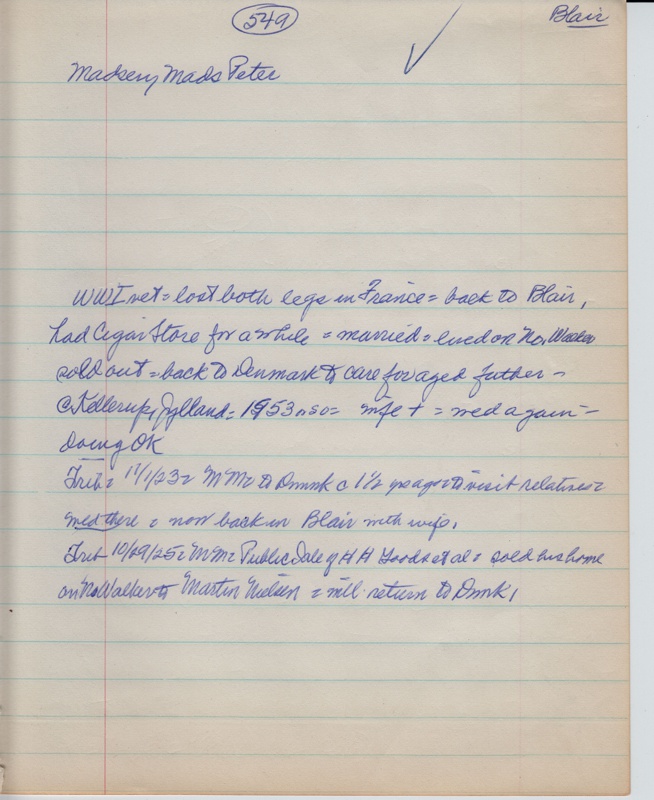 549
Blair
Madsen, Mads Peter
WWI vet = lost both legs in France = back to Blair,
had Cigar Store for a while = married = lived on No. Walker
sold out = back to Denmark to care for aged father -
c Kellerup, Jylland = 1953 n so = wife + = med again -
doing OK
Trib = 11/1/23 = MM = to Dnmk c 1½ yrs ago = to visit relatives =
med there = now back in Blair with wife.
Trib 10/29/25 = MM = Public Sale of HH Goods et al = sold his home
on No Walker to Martin Nielsen = will return to Dnmk,